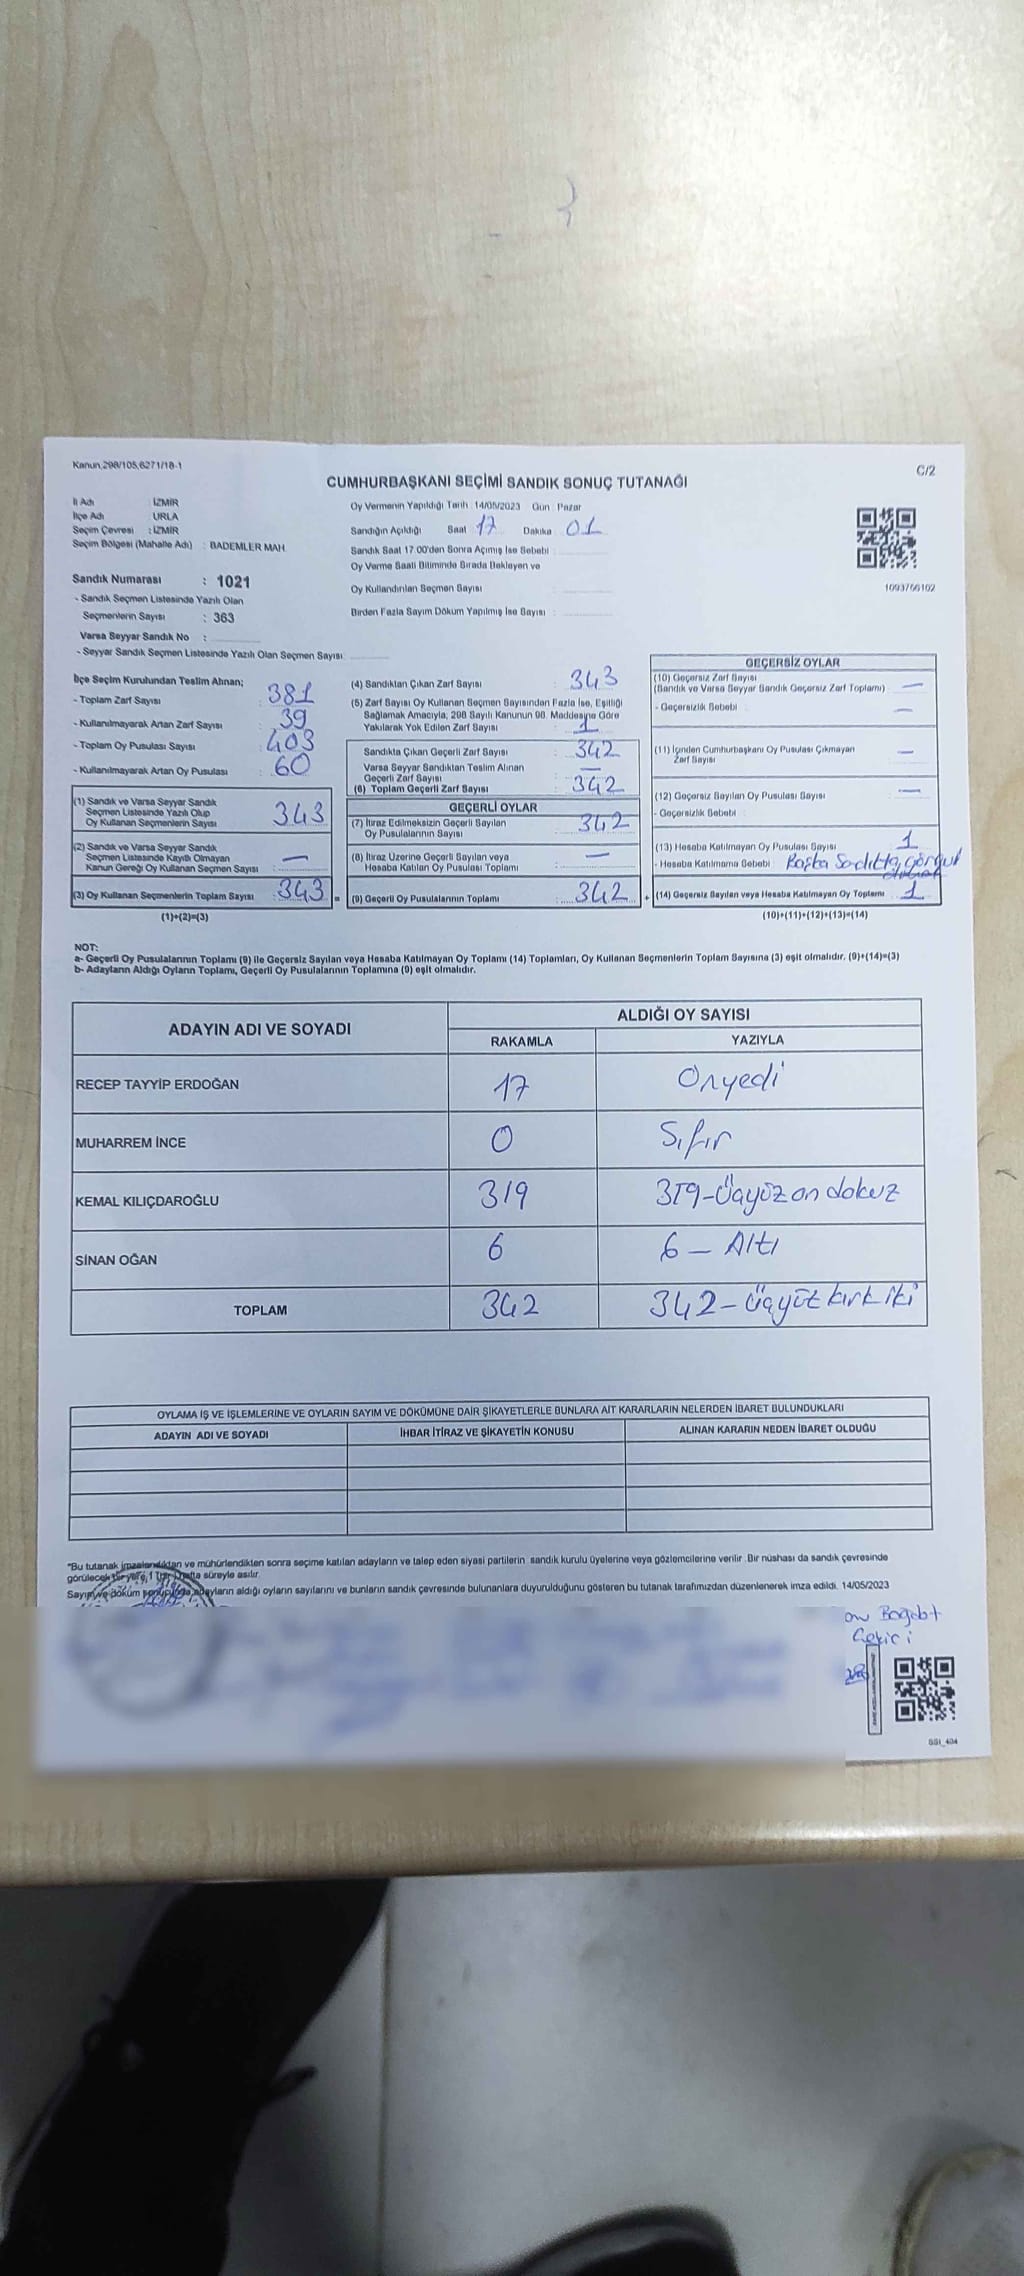 Kanun,298/105,6271/18-1
C/2
CUMHURBAŞKANI SEÇİMİ SANDIK SONUÇ TUTANAĞI
İl Adı : İZMİR
İlçe Adı : URLA
Seçim Çevresi : İZMİR
Seçim Bölgesi (Mahalle Adı) : BADEMLER MAH.
Sandık Numarası : 1021
- Sandık Seçmen Listesinde Yazılı Olan
Seçmenlerin Sayısı : 363
Varsa Seyyar Sandık No :
- Seyyar Sandık Seçmen Listesinde Yazılı Olan Seçmen Sayısı
Oy Vermenin Yapıldığı Tarih : 14/05/2023 Gün : Pazar
Sandığın Açıldığı Saat 17 Dakika 01
Sandık Saat 17:00'den Sonra Açımış İse Sebebi
Oy Verme Saati Bitiminde Sırada Bekleyen ve
Oy Kullandırılan Seçmen Sayısı
Birden Fazla Sayım Döküm Yapılmış İse Sayısı
1093766102
İlçe Seçim Kurulundan Teslim Alınan;
- Toplam Zarf Sayısı : 381
- Kullanılmayarak Artan Zarf Sayısı : 39
- Toplam Oy Pusulası Sayısı : 403
- Kullanılmayarak Artan Oy Pusulası : 60
(1) Sandık ve Varsa Seyyar Sandık
Seçmen Listesinde Yazılı Olup
Oy Kullanan Seçmenlerin Sayısı : 343
(2) Sandık ve Varsa Seyyar Sandık
Seçmen Listesinde Kayıtlı Olmayan
Kanun Gereği Oy Kullanan Seçmen Sayısı : —
(3) Oy Kullanan Seçmenlerin Toplam Sayısı : 343 =
(1)+(2)=(3)
(4) Sandıktan Çıkan Zarf Sayısı : 343
(5) Zarf Sayısı Oy Kullanan Seçmen Sayısından Fazla İse, Eşitliği
Sağlamak Amacıyla, 298 Sayılı Kanunun 98. Maddesine Göre
Yakılarak Yok Edilen Zarf Sayısı : 1
Sandıkta Çıkan Geçerli Zarf Sayısı : 342
Varsa Seyyar Sandıktan Teslim Alınan
Geçerli Zarf Sayısı : —
(6) Toplam Geçerli Zarf Sayısı : 342
GEÇERLİ OYLAR
(7) İtiraz Edilmeksizin Geçerli Sayılan
Oy Pusulalarının Sayısı : 342
(8) İtiraz Üzerine Geçerli Sayılan veya
Hesaba Katılan Oy Pusulası Toplamı : —
(9) Geçerli Oy Pusulalarının Toplamı : 342 +
GEÇERSİZ OYLAR
(10) Geçersiz Zarf Sayısı
(Sandık ve Varsa Seyyar Sandık Geçersiz Zarf Toplamı) —
- Geçersizlik Sebebi : —
(11) İçinden Cumhurbaşkanı Oy Pusulası Çıkmayan
Zarf Sayısı : —
(12) Geçersiz Sayılan Oy Pusulası Sayısı : —
- Geçersizlik Sebebi :
(13) Hesaba Katılmayan Oy Pusulası Sayısı : 1
- Hesaba Katılmama Sebebi : Başka Sandıkta
(14) Geçersiz Sayılan veya Hesaba Katılmayan Oy Toplamı : 1
(10)+(11)+(12)+(13)=(14)
NOT:
a- Geçerli Oy Pusulalarının Toplamı (9) ile Geçersiz Sayılan veya Hesaba Katılmayan Oy Toplamı (14) Toplamları, Oy Kullanan Seçmenlerin Toplam Sayısına (3) eşit olmalıdır. (9)+(14)=(3)
b- Adayların Aldığı Oyların Toplamı, Geçerli Oy Pusulalarının Toplamına (9) eşit olmalıdır.
ADAYIN ADI VE SOYADI
ALDIĞI OY SAYISI
RAKAMLA YAZIYLA
RECEP TAYYİP ERDOĞAN 17 Onyedi
MUHARREM İNCE 0 Sıfır
KEMAL KILIÇDAROĞLU 319 319-Üçyüz on dokuz
SİNAN OĞAN 6 6 — Altı
TOPLAM 342 342-Üçyüz kırk iki
OYLAMA İŞ VE İŞLEMLERİNE VE OYLARIN SAYIM VE DÖKÜMÜNE DAİR ŞİKAYETLERLE BUNLARA AİT KARARLARIN NELERDEN İBARET BULUNDUKLARI
ADAYIN ADI VE SOYADI İHBAR İTİRAZ VE ŞİKAYETİN KONUSU ALINAN KARARIN NEDEN İBARET OLDUĞU
*Bu tutanak imzalandıktan ve mühürlendikten sonra seçime katılan adayların ve talep eden siyasi partilerin sandık kurulu üyelerine veya gözlemcilerine verilir. Bir nüshası da sandık çevresinde
görülecek bir yere, 1 hafta süreyle asılır.
Sayım ve döküm adayların aldığı oyların sayılarını ve bunların sandık çevresinde bulunanlara duyurulduğunu gösteren bu tutanak tarafımızdan düzenlenerek imza edildi. 14/05/2023
SSI_404